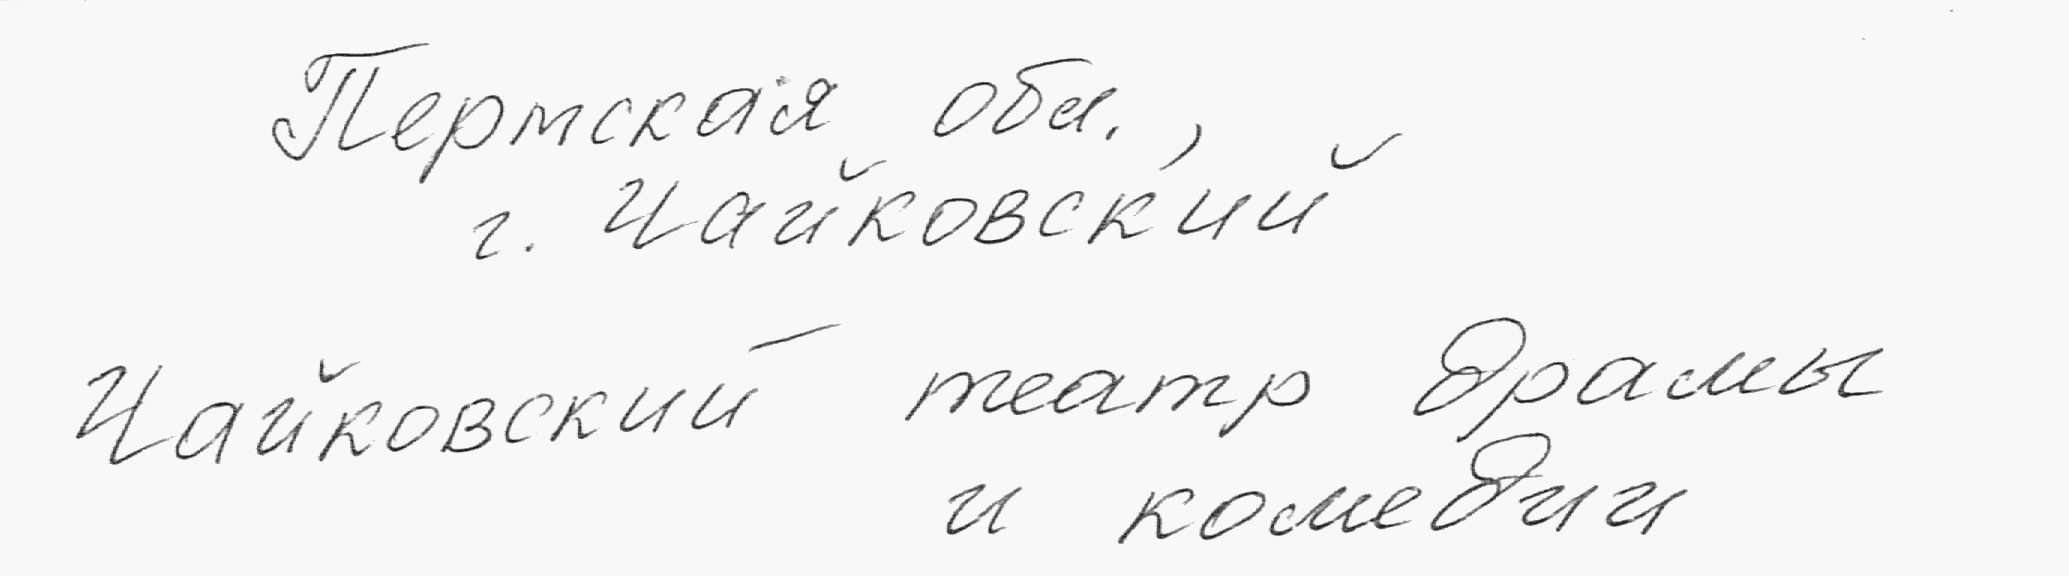 Пермская обл.,
г. Чайковский
Чайковский театр драмы
и комедии